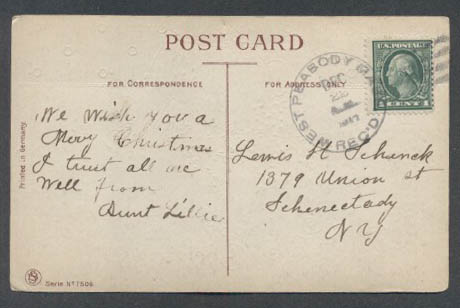 POST CARD
FOR CORRESPONDENCE
FOR ADDRESS ONLY
We Wish you a
Merry Christmas
I trust all are
Well from
Aunt Lillie
Lewis H Schenck
1379 Union st
Schenectady
NY
WEST PEABODY MA
DEC
REC'D
U.S. POSTAGE
1 CENT 1
Printed in Germany
Serie No 7506